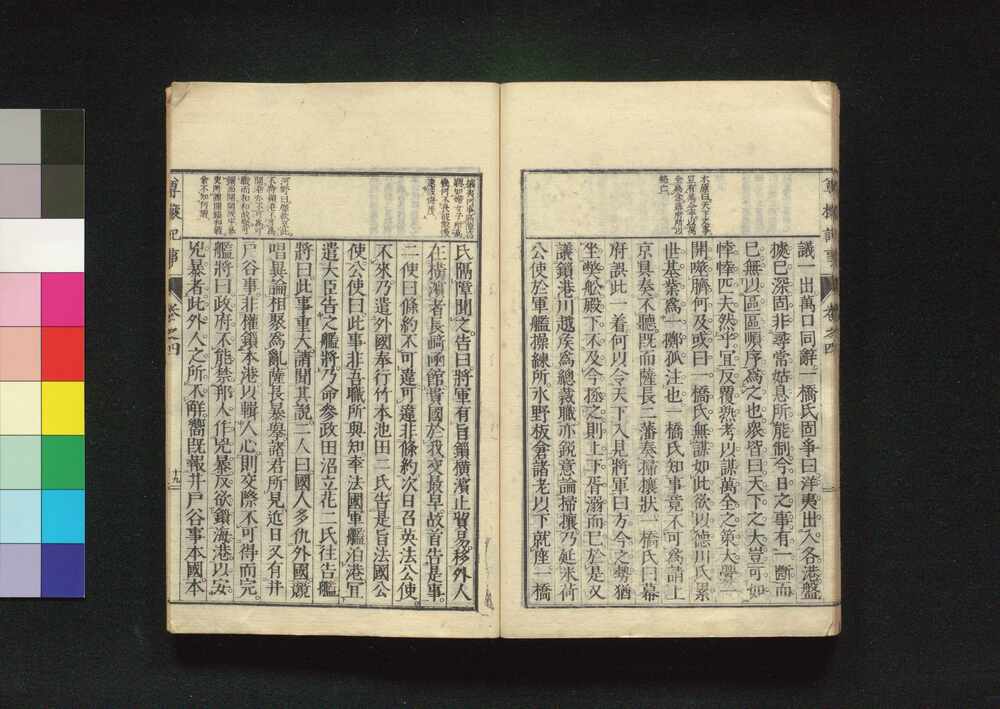 議一出萬口同辭一橋氏固爭曰洋夷出入各港盤
據已深固非尋常姑息所能制今日之事有一斷而
已無以區區順序爲之也衆皆曰天下之大豈可如
悻悻匹夫然乎宜反覆熟考以謀萬全之策大聲一
開噬臍何及或曰一橋氏無謀如此欲以德川氏累
世基業爲一擲孤注也一橋氏知事竟不可爲請上
京具奏不聽既而薩長二藩奏掃攘狀一橋氏曰幕
府誤此一着何以令天下入見將軍曰方今之勢猶
坐弊舩殿下不及今拯之則上下胥溺而已於是又
議鎖港川越矦爲總裁職亦銳意論掃攘乃延米荷
公使於軍艦操練所水野板倉諸老以下就座一橋
木原曰天下之事
豈有萬全幸以萬
全爲念幕府所以
氏隔障聞之告曰將軍有旨鎖橫濱止貿易移外人
在橫濱者長崎函館貴國於我交最早故首告是事
二使曰條約不可違可違非條約次日召英法公使
不來乃遣外國奉行竹本池田二氏告是旨法國公
使公使曰此事非吾職所與知率法國軍艦泊港宜
遣大臣告之艦將乃命參政田沼立花二氏往告艦
將曰此事重大請聞其說二人曰國人多仇外國競
唱異論相聚爲亂薩長暴擧諸君所見近日又有井
戶谷事非權鎖本港以輯人心則交際不可得而完
艦將曰政府不能禁邦人作兇暴反欲鎖海港以安
兇暴者此外人之所不解嚮既報井戶谷事本國本
尊攘紀事
卷之四
十九